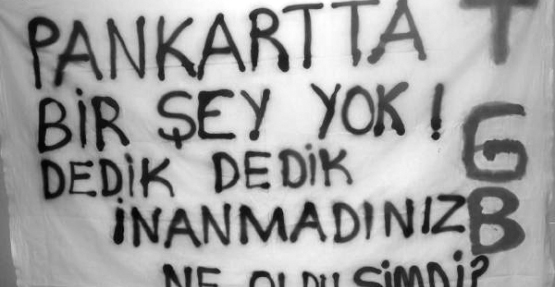 PANKARTTA
BİR ŞEY YOK!
DEDİK DEDİK
İNANMADINIZ
NE OLDU ŞİMDİ?
T
G
B